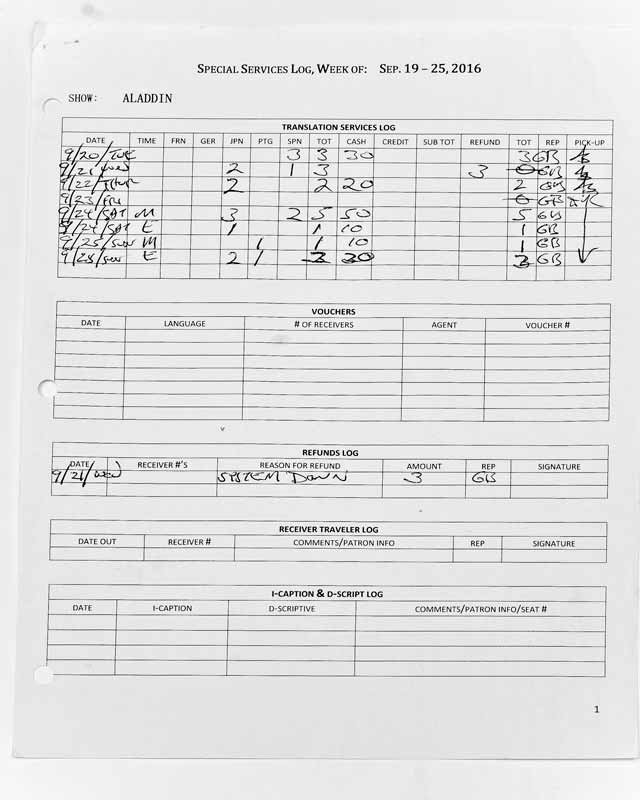 SPECIAL SERVICES LOG, WEEK OF: SEP. 19 – 25, 2016
SHOW: ALADDIN
TRANSLATION SERVICES LOG
DATE TIME FRN GER JPN PTG SPN TOT CASH CREDIT SUB TOT REFUND TOT REP PICK-UP
9/20/TUE 3 3 30 3 GB
9/21/WED 2 1 3 3 0 GB
9/22/THUR 2 2 20 2 GB
9/23/FRI 0 GB
9/24/SAT M 3 2 5 50 5 GB
9/24/SAT E 1 1 10 1 GB
9/25/SUN M 1 1 10 1 GB
9/25/SUN E 2 1 3 30 3 GB
VOUCHERS
DATE LANGUAGE # OF RECEIVERS AGENT VOUCHER #
REFUNDS LOG
DATE RECEIVER #'S REASON FOR REFUND AMOUNT REP SIGNATURE
9/21/WED SYSTEM DOWN 3 GB
RECEIVER TRAVELER LOG
DATE OUT RECEIVER # COMMENTS/PATRON INFO REP SIGNATURE
I-CAPTION & D-SCRIPT LOG
DATE I-CAPTION D-SCRIPTIVE COMMENTS/PATRON INFO/SEAT #
1